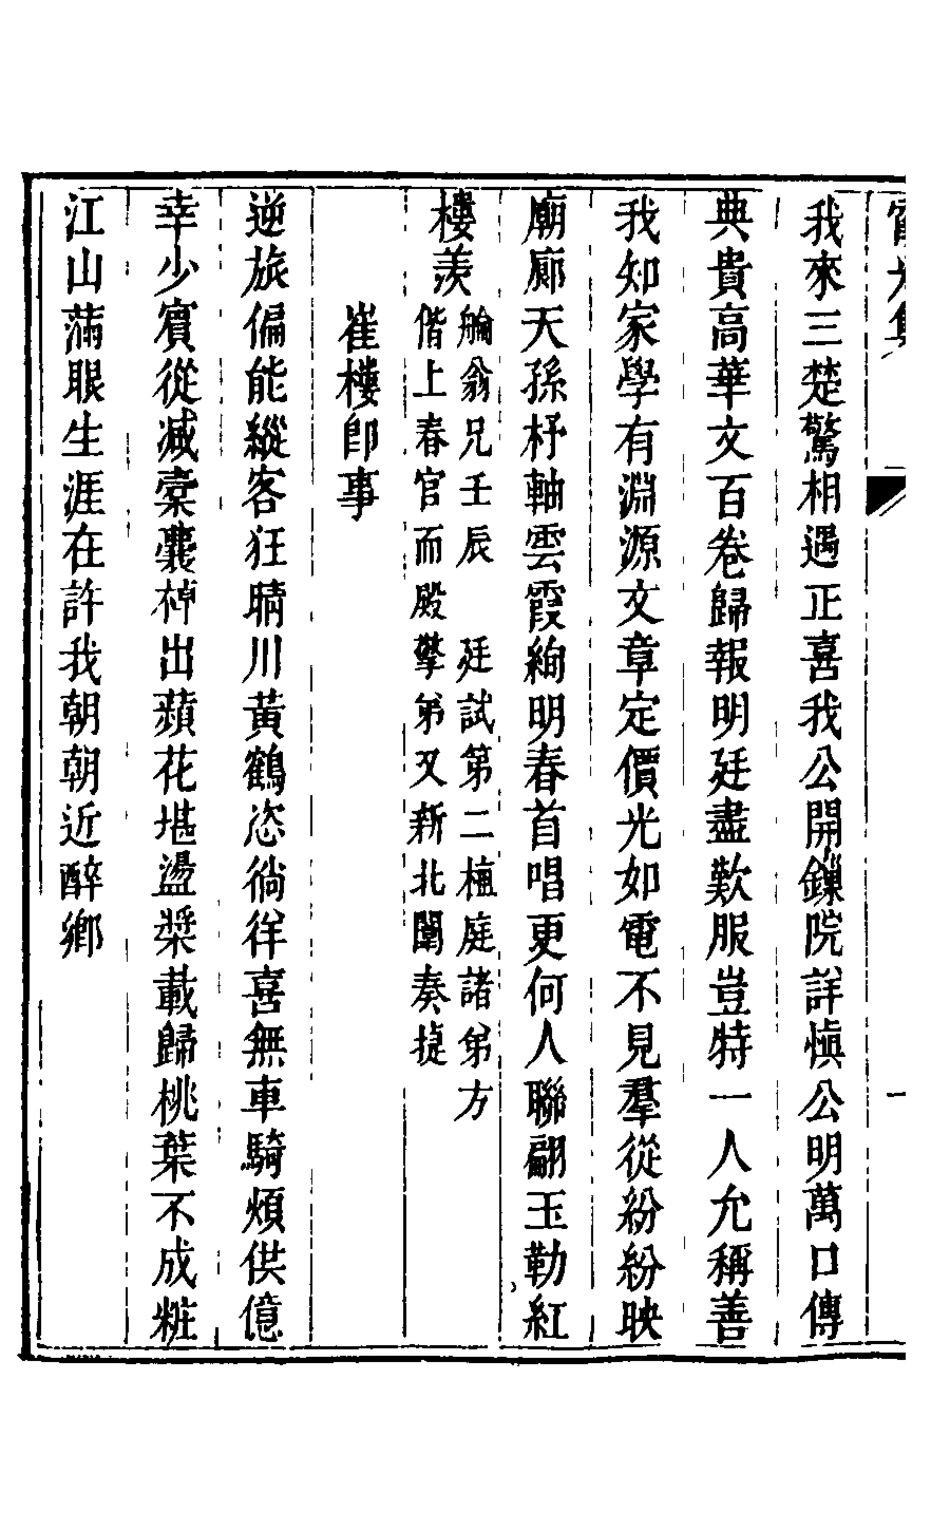 我來三楚驚相遇正喜我公開鏁院詳愼公明萬口傳
典貴高華文百卷歸報明廷盡歎服豈特一人允稱善
我知家學有淵源文章定價光如電不見羣從紛紛映
廟廊天孫杼軸雲霞絢明春首唱更何人聯翩玉勒紅
樓羨
艑翁兄壬辰　廷試第二植庭諸弟方
偕上春官而殿擎弟又新北闈奏捷
崔樓卽事
逆旅偏能縱客狂晴川黃鶴恣徜徉喜無車騎煩供億
幸少賓從减橐囊棹出蘋花堪盪槳載歸桃葉不成粧
江山滿眼生涯在許我朝朝近醉鄉
一